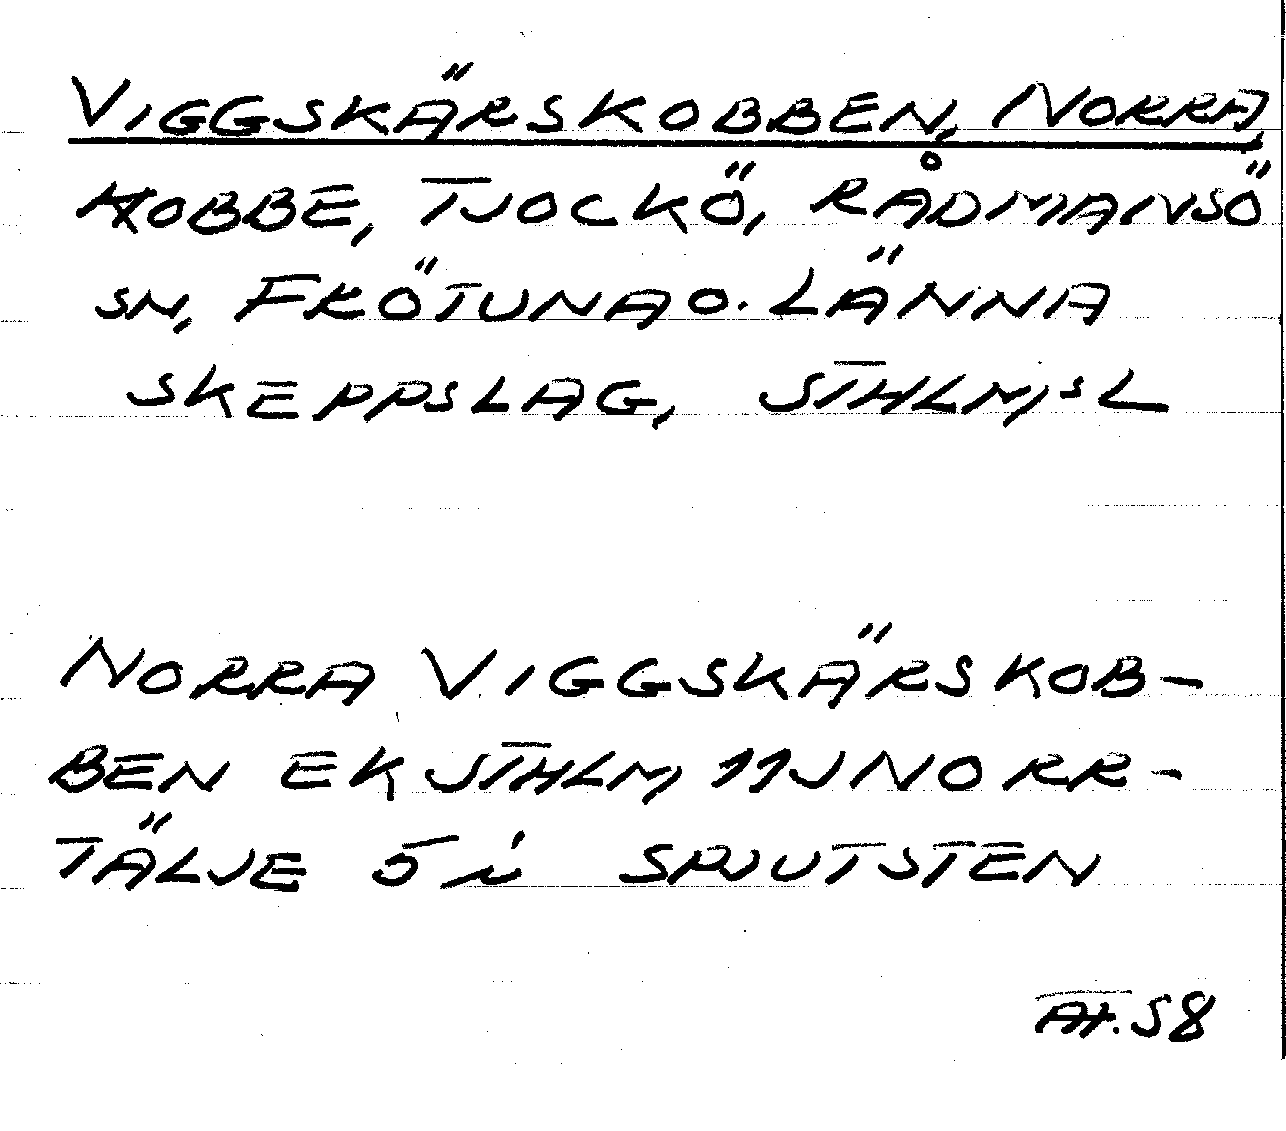 VIGGSKÄRSKOBBEN, NORRA,
KOBBE, TJOCKÖ, RÅDMANSÖ
SN, FRÖTUNA O. LÄNNA
SKEPPSLAG, STHLM,S L
NORRA VIGGSKÄRSKOB-
BEN EK STHLM 11J NORR-
TÄLJE 5 i SPJUTSTEN
58